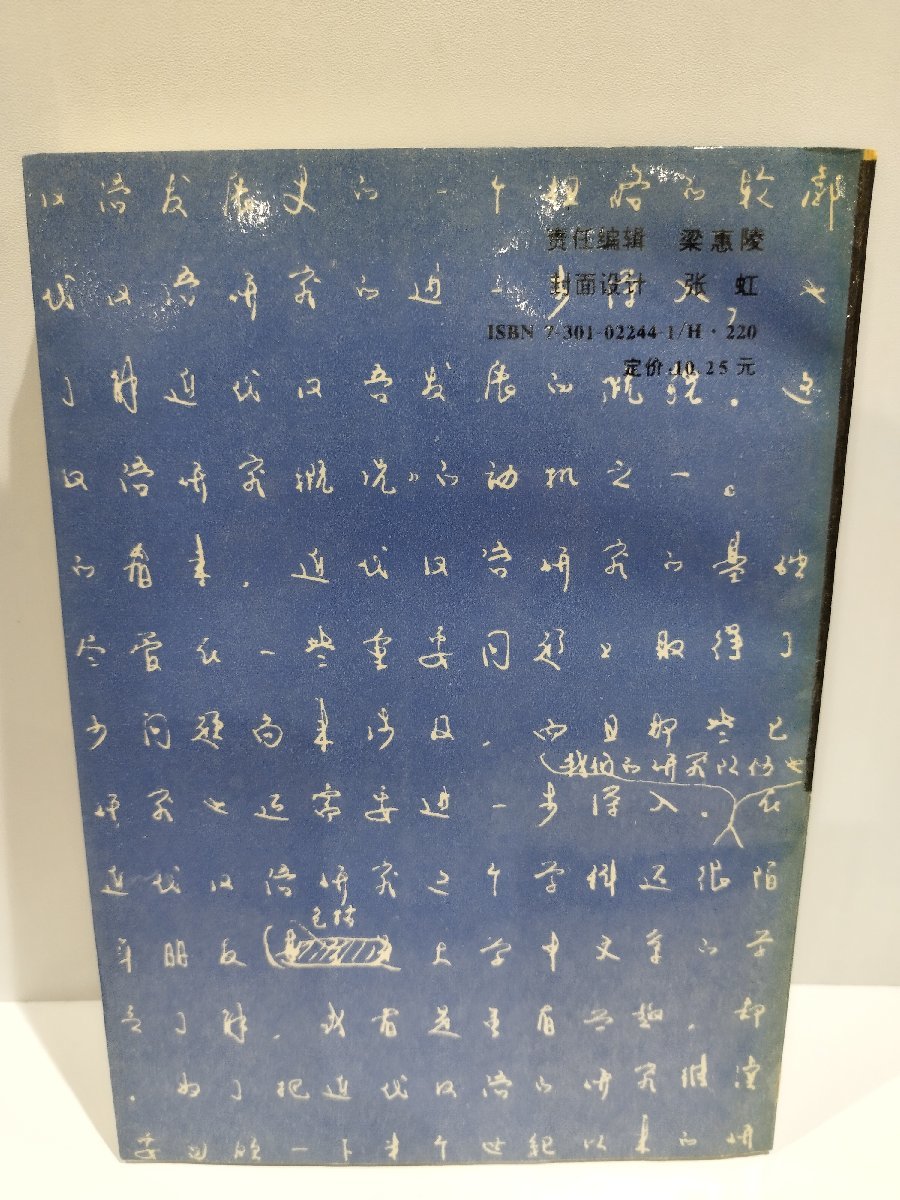 汉语发展史的一个粗略的轮廓
责任编辑 梁惠陵
代汉语研究的进一步深入，也
封面设计 张虹
ISBN 7-301-02244-1/H·220
定价:10.25元
了解近代汉语发展的概貌。这
汉语研究概况》的动机之一。
的看来，近代汉语研究的基础
尽管在一些重要问题上取得了
少问题尚未涉及，而且那些已
我们的研究以仿也
研究也还需要进一步深入。在
近代汉语研究这个学科还很陌
年朋友
包括
大学中文系的学
了解，或者是有兴趣，却
，为了把近代汉语的研究继续
要回顾一下半个世纪以来的研